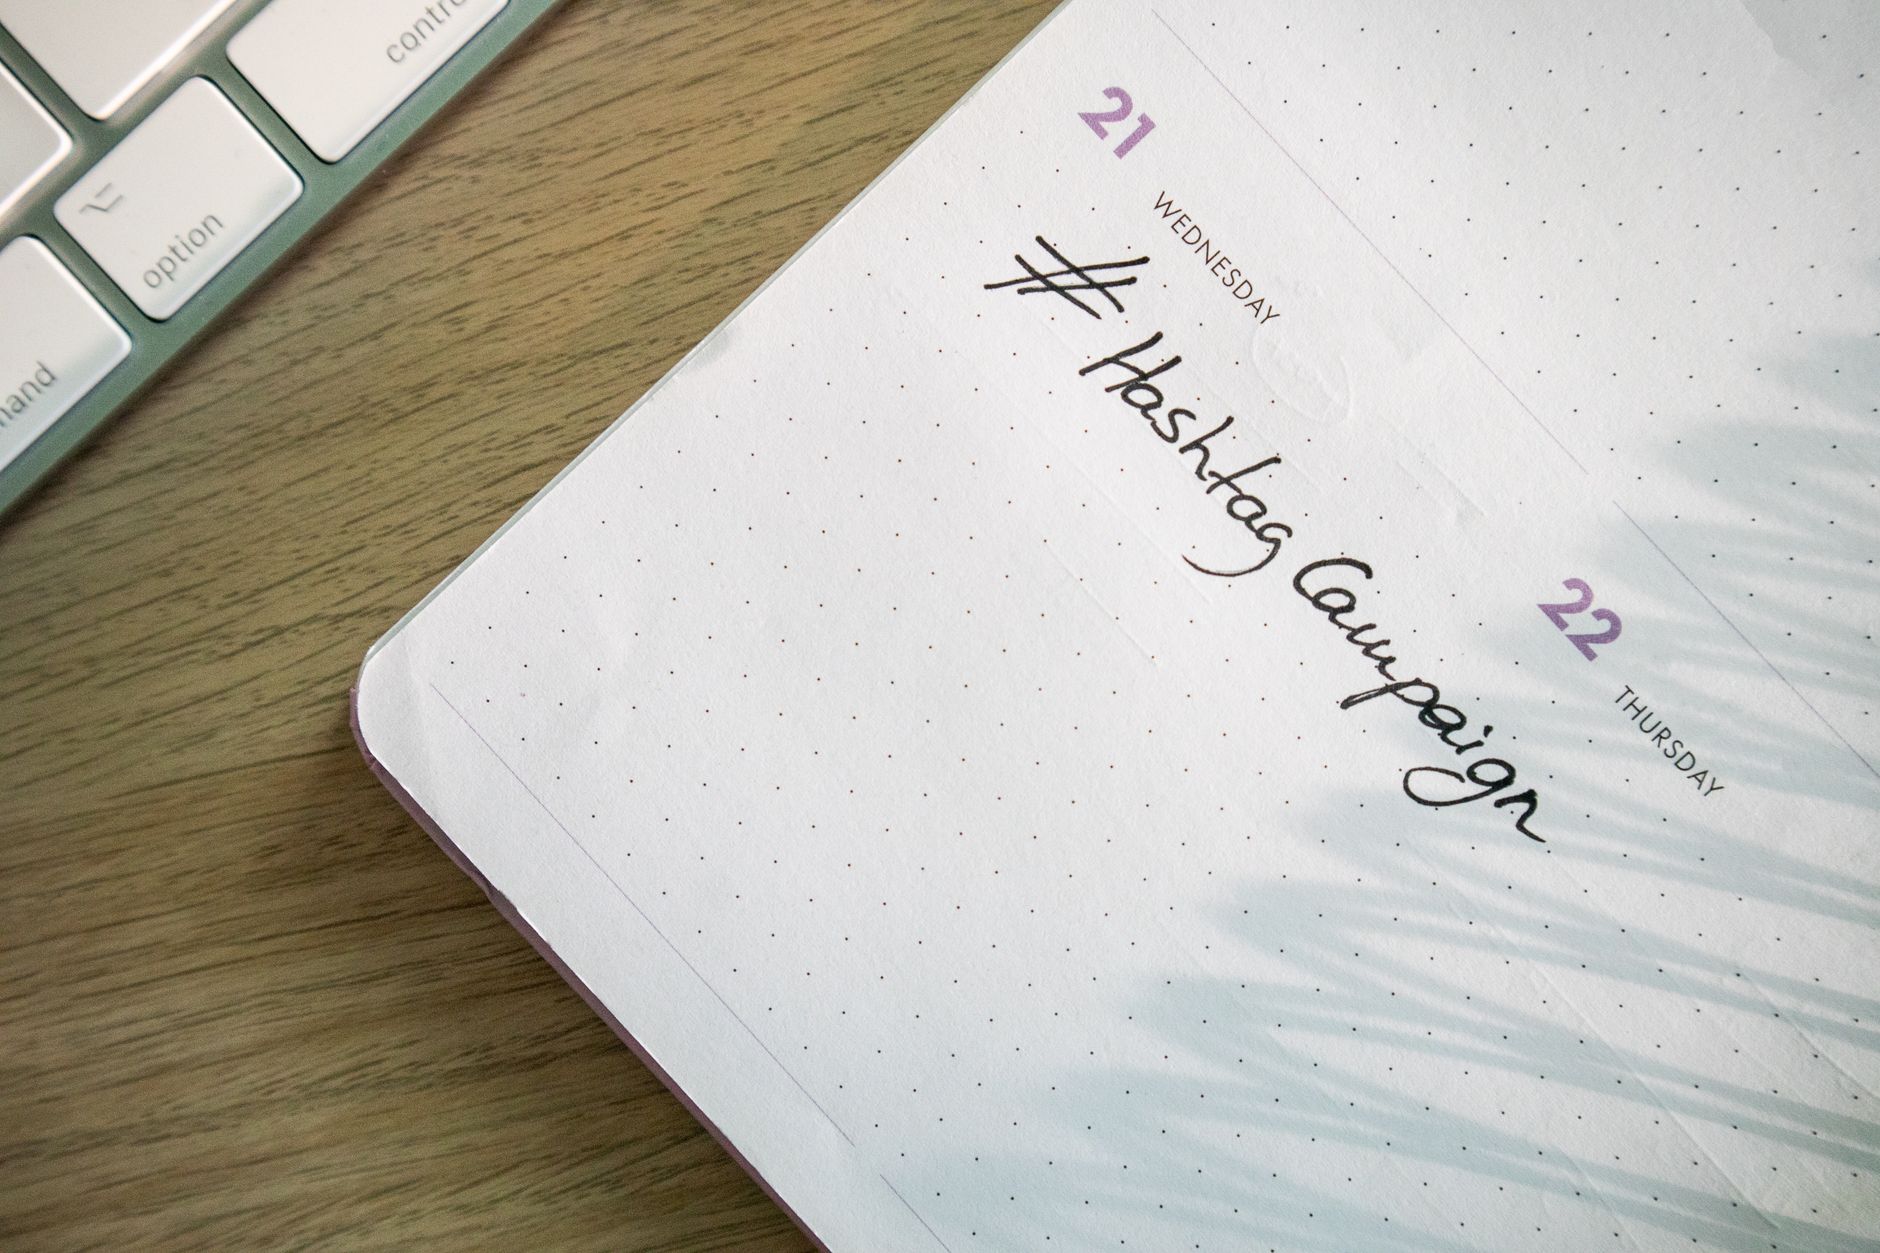 contro
⌥
option
mand
21
WEDNESDAY
# Hashtag Campaign
22
THURSDAY